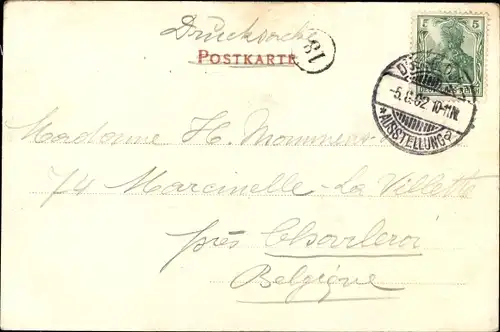 Drucksache
POSTKARTE
18
5
5
-5.6.02 10-11V.
*AUSSTELLUNG a
Madame H. Mommens
74 Marcinelle-La Villette
près Charleroi
Belgique